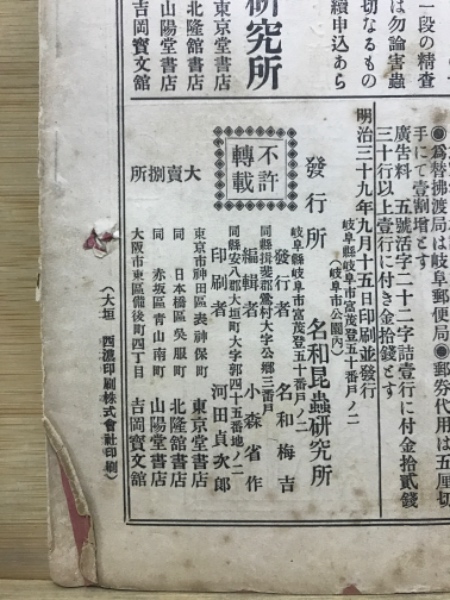 一段の精查
は勿論害蟲
切なるもの
續申込あら
研究所
東京堂書店
北隆館書店
山陽堂書店
吉岡寶文舘
●爲替拂渡局は岐阜郵便局●郵券代用は五厘切
手にて壹割增とす
廣告料 五號活字二十二字詰壹行に付金拾貳錢
三十行以上壹行に付き金拾錢とす
明治三十九年九月十五日印刷並發行
岐阜縣岐阜市富茂登五十番戸ノ二
(岐阜市公園内)
發行所 名和昆蟲研究所
岐阜縣岐阜市富茂登五十番戸ノ二
發行者 名和梅吉
同縣揖斐郡鶯村大字公郷三番戸
編輯者 小森省作
同縣安八郡大垣町大字郭四十五番地ノ二
印刷者 河田貞次郎
不許
轉載
大賣捌所
東京市神田區表神保町 東京堂書店
同 日本橋區吳服町 北隆舘書店
同 赤坂區青山南町 山陽堂書店
大阪市東區備後町四丁目 吉岡寶文舘
(大垣 西濃印刷株式會社印刷)